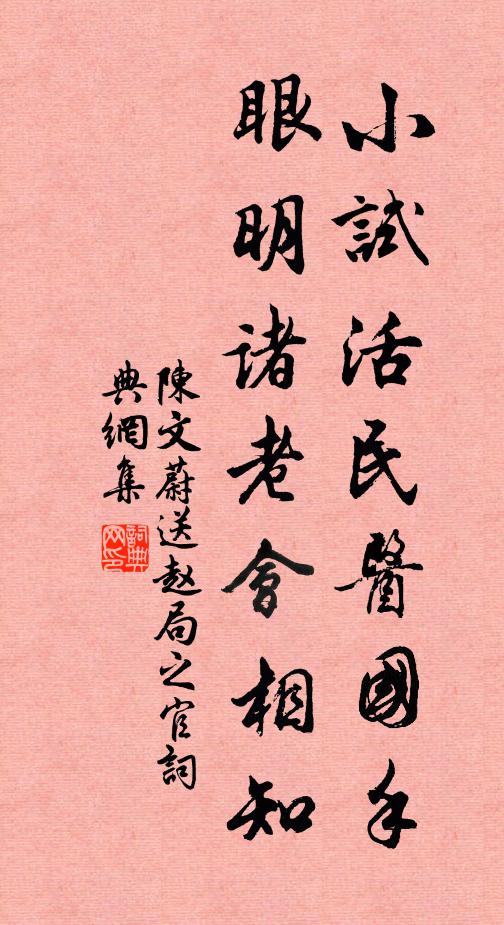 小試活民醫國手
眼明諸老會相知
陳文蔚送趙局之官詞
典網集
詞典网印